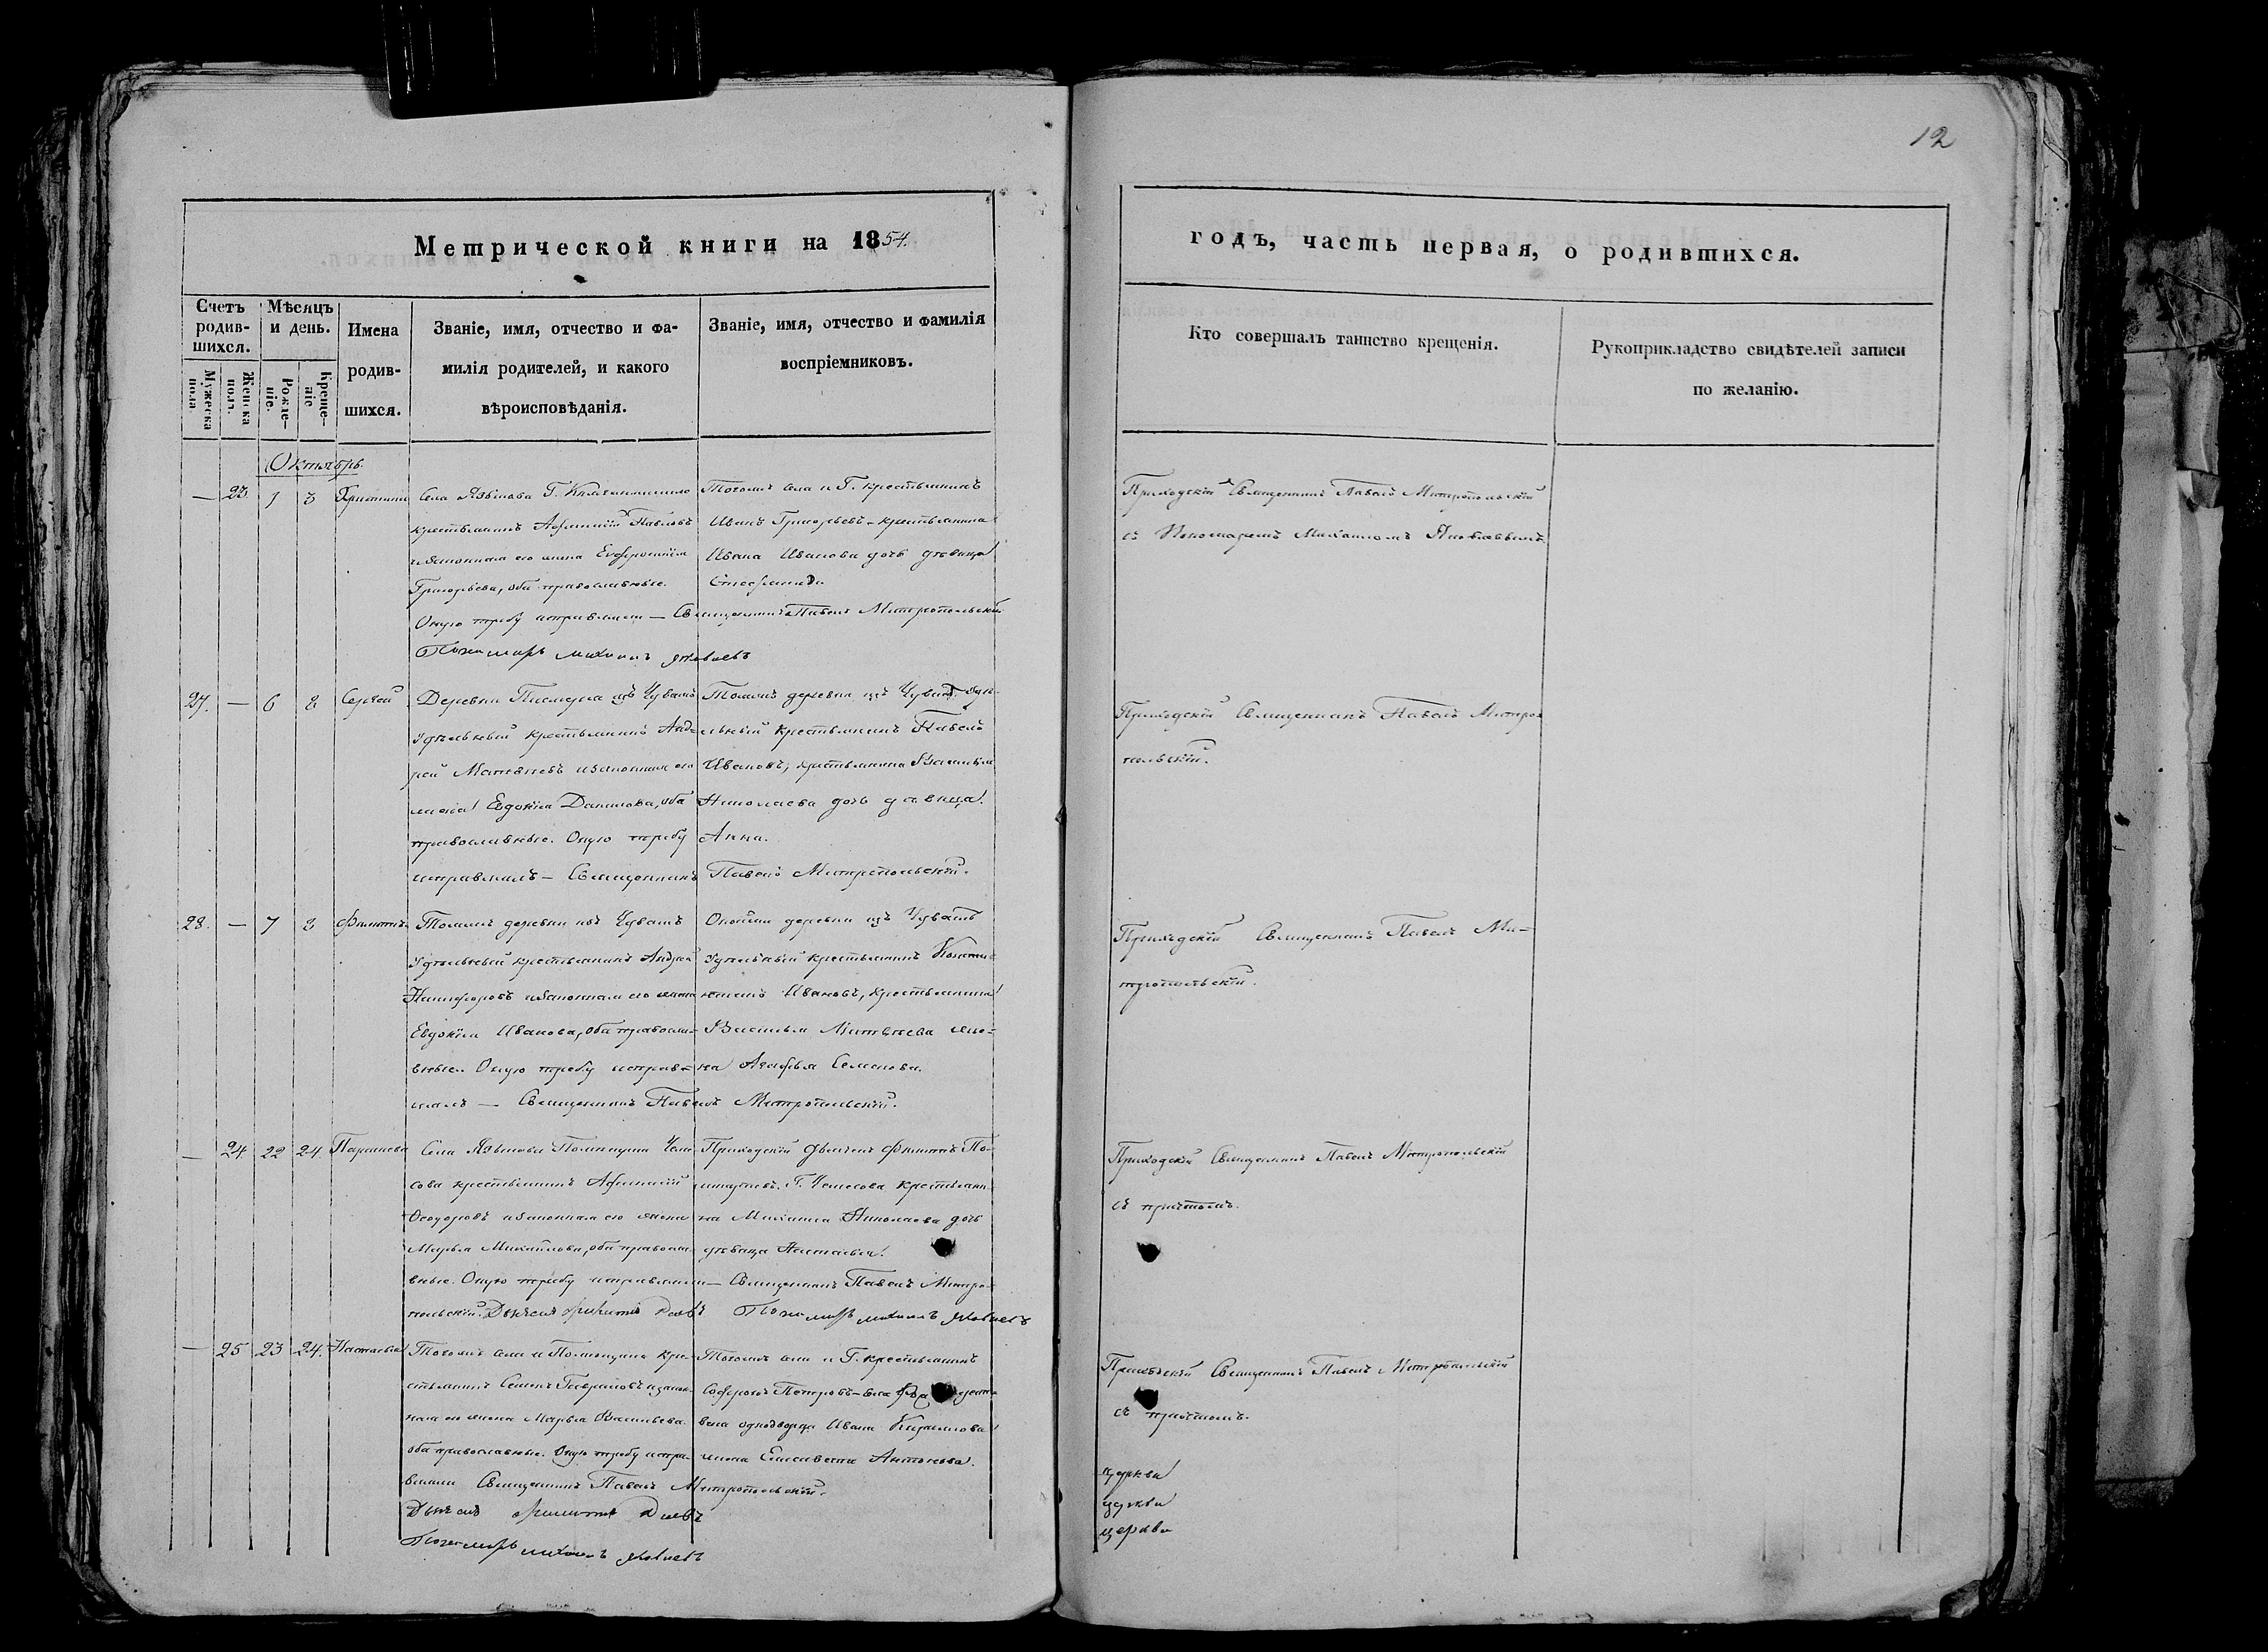 12
Метрической книги на 1854.
годъ, часть первая, о родившихся.
Счетъ родив-
шихся.
Мужеска пола
Женска полъ.
Мѣсяцъ и день.
Рожде-
ніе.
Креще-
ніе
Имена
родив-
шихся.
Званіе, имя, отчество и фа-
милія родителей, и какого
вѣроисповѣданія.
Званіе, имя, отчество и фамилія
воспріемниковъ.
Кто совершалъ таинство крещенія.
Рукоприкладство свидѣтелей записи
по желанію.
Октябрь.
— 23. 1 3 Христина
Села Языкова Г.
крестьянинъ Павловъ
законная его жена Евфросинія
Григорьева, оба православные.
Тогожъ села и Г. крестьянинъ
Иванъ Григорьевъ – крестьянина
Ивана Иванова дочь дѣвица
Оную требу исправляли — Священникъ Павелъ Митропольскій
Пономарь Михаилъ Яковлевъ
Приходскій Священникъ Павелъ Митропольскій
съ Пономаремъ Михаиломъ Яковлевымъ.
27. — 6 8 Сергей
Деревни изъ Чувашъ
Удѣльный крестьянинъ Анд-
рей Матвѣевъ и законная его
жена Евдокія Данилова, оба
православные. Оную требу
исправлялъ — Священникъ Павелъ Митропольскій.
Тояжъ деревни изъ Чувашъ Удѣ-
льный крестьянинъ Павелъ
Ивановъ; крестьянина Василія
Николаева дочь дѣвица
Анна.
Приходскій Священникъ Павелъ Митропо
польскій.
28. — 7 8 Филиппъ
Тояжъ деревни изъ Чувашъ
Удѣльный крестьянинъ Андрей
Никифоровъ и законная его жена
Евдокія Иванова, оба правосла-
вные. Оную требу исправ-
лялъ — Священникъ Павелъ Митропольскій.
Оной деревни изъ Чувашъ
Удѣльный крестьянинъ Конста-
нтинъ Ивановъ, крестьянина
Василья Матвѣева же-
на Агафья Семенова.
Приходскій Священникъ Павелъ Ми-
тропольскій.
— 24. 22 24. Параскева
Села Языкова Помѣщика
крестьянинъ Афанасій
Ѳеодоровъ и законная его жена
Марья Михайлова, оба правосла-
вные. Оную требу исправляли — Священникъ Павелъ Митро-
польскій. Дьячекъ Пономарь Михаилъ Яковлевъ
Приходскій Дьячекъ Филиппъ
крестьяни-
на Михаила Николаева дочь
дѣвица Настасья.
Приходскій Священникъ Павелъ Митропольскій
съ причтомъ.
— 25 23 24. Настасья
Тогожъ села и Помѣщика кре-
стьянинъ Семенъ Гавриловъ и закон-
ная его жена Марья Васильева
оба православные. Оную требу испра-
вляли Священникъ Павелъ Митропольскій.
Дьячекъ
Пономарь Михаилъ Яковлевъ
Тогожъ села и Г. крестьянинъ
Петровъ –
однодворца Ивана Кирилова
жена Елисавета Антонова.
Приходскій Священникъ Павелъ Митропольскій
съ причтомъ.
церкви
церкви
церкви